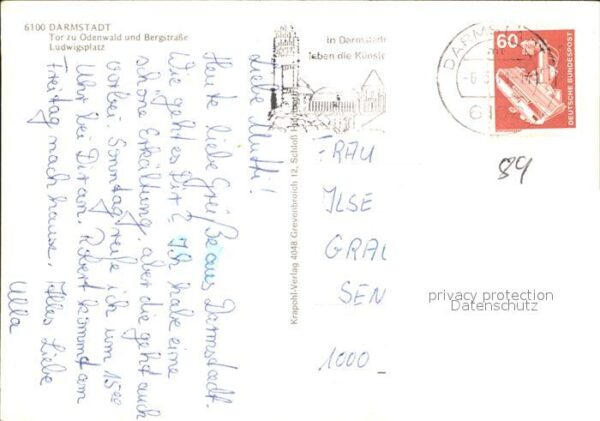 6100 DARMSTADT
Tor zu Odenwald und Bergstraße
Ludwigsplatz
Liebe Mutti!
Heute liebe Grüße aus Darmstadt.
Wie geht es Dir? Ich habe eine
schöne Erkältung, aber die geht auch
vorbei. Sonntag reise ich um 15⁰⁰
Uhr bei Dir an. Robert kommt am
Freitag nach hause. Alles Liebe
Ulla
Krapohl-Verlag 4048 Grevenbroich 12, Schloß
in Darmstadt
leben die Künste
DARMST
60
DEUTSCHE BUNDESPOST
FRAU
ILSE
GRAU
SEN
1000
84
privacy protection
Datenschutz